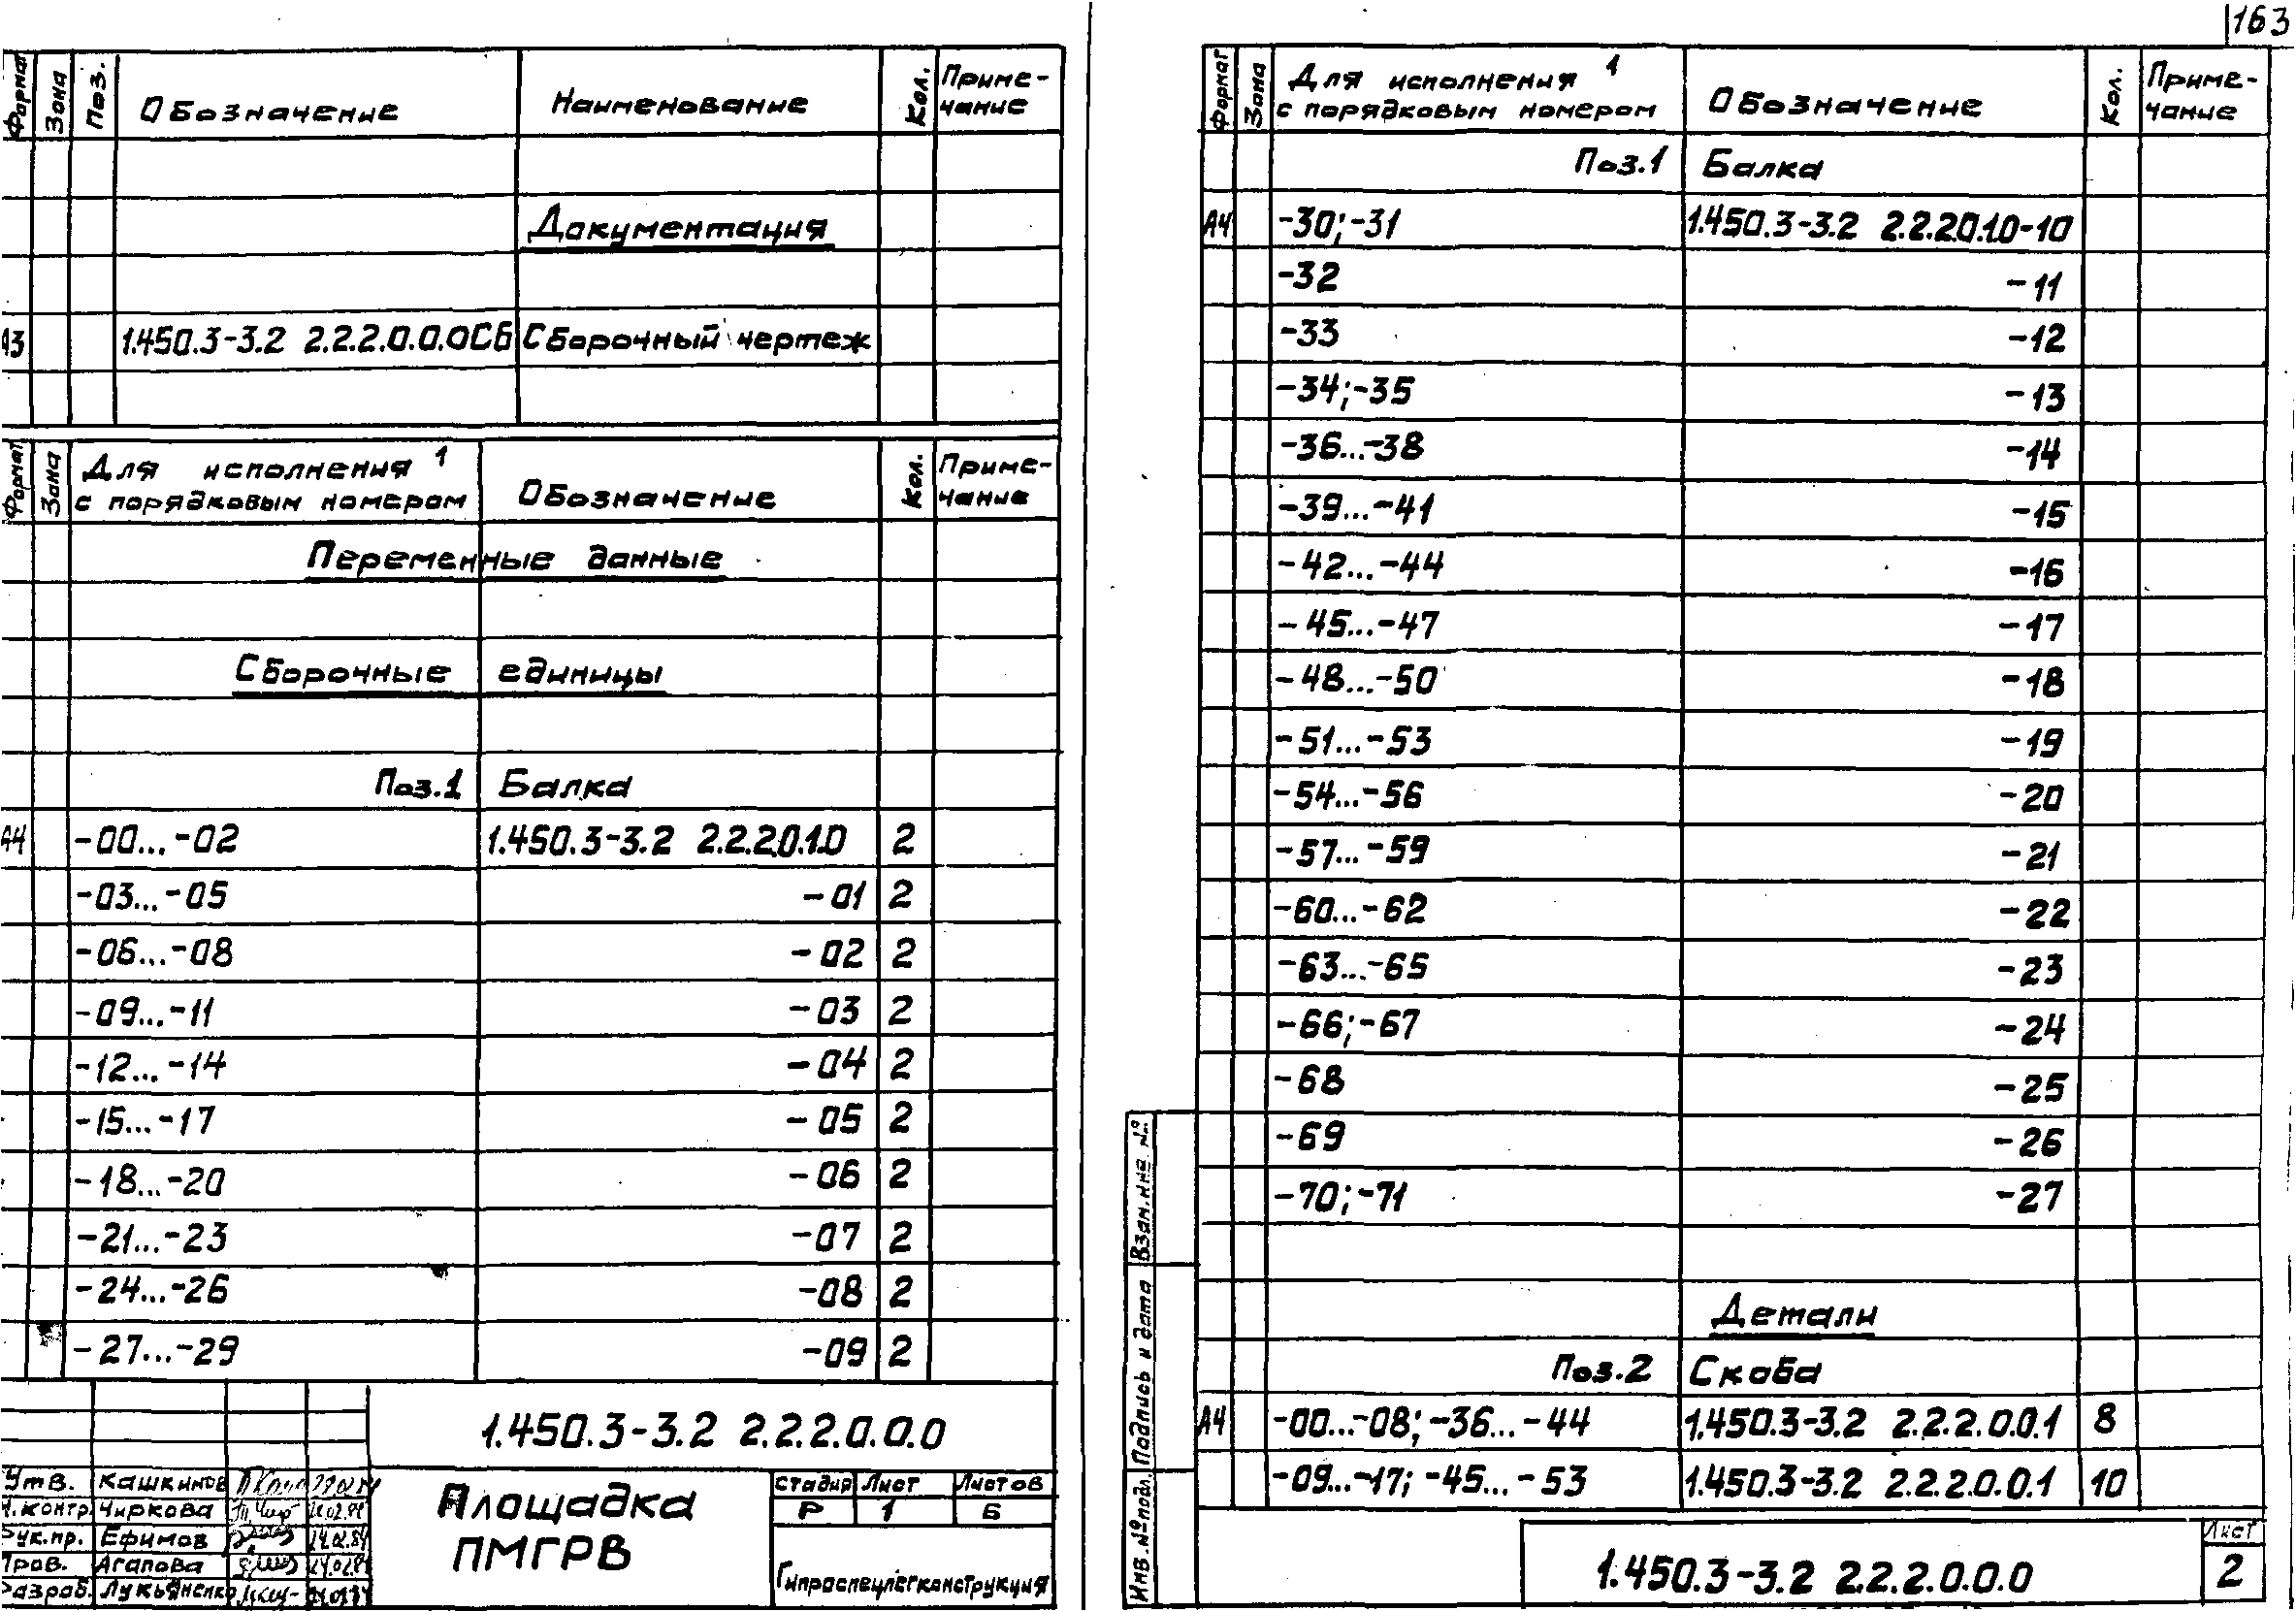 163
Формат Зона Поз. Обозначение Наименование Кол. Приме-
чание
Документация
А3 1.450.3-3.2 2.2.2.0.0.0СБ Сборочный чертеж
Формат Зона Для исполнения 1
с порядковым номером Обозначение Кол. Приме-
чание
Переменные данные
Сборочные единицы
Поз.1 Балка
А4 -00...-02 1.450.3-3.2 2.2.2.0.1.0 2
-03...-05 -01 2
-06...-08 -02 2
-09...-11 -03 2
-12...-14 -04 2
-15...-17 -05 2
-18...-20 -06 2
-21...-23 -07 2
-24...-26 -08 2
-27...-29 -09 2
1.450.3-3.2 2.2.2.0.0.0
Утв. Кашкинов
Н.контр. Чиркова
Рук.пр. Ефимов 24.02.84
Пров. Агапова 24.02.84
Разраб. Лукьяненко
Площадка
ПМГРВ
Стадия Лист Листов
Р 1 6
Гипроспецлегконструкция
Формат Зона Для исполнения 1
с порядковым номером Обозначение Кол. Приме-
чание
Поз.1 Балка
А4 -30;-31 1.450.3-3.2 2.2.2.0.1.0-10
-32 -11
-33 -12
-34;-35 -13
-36...-38 -14
-39...-41 -15
-42...-44 -16
-45...-47 -17
-48...-50 -18
-51...-53 -19
-54...-56 -20
-57...-59 -21
-60...-62 -22
-63...-65 -23
-66;-67 -24
-68 -25
-69 -26
-70;-71 -27
Детали
Поз.2 Скоба
А4 -00...-08; -36...-44 1.450.3-3.2 2.2.2.0.0.1 8
-09...-17; -45...-53 1.450.3-3.2 2.2.2.0.0.1 10
Взам.инв.№
Подпись и дата
Инв.№подл.
1.450.3-3.2 2.2.2.0.0.0
Лист
2